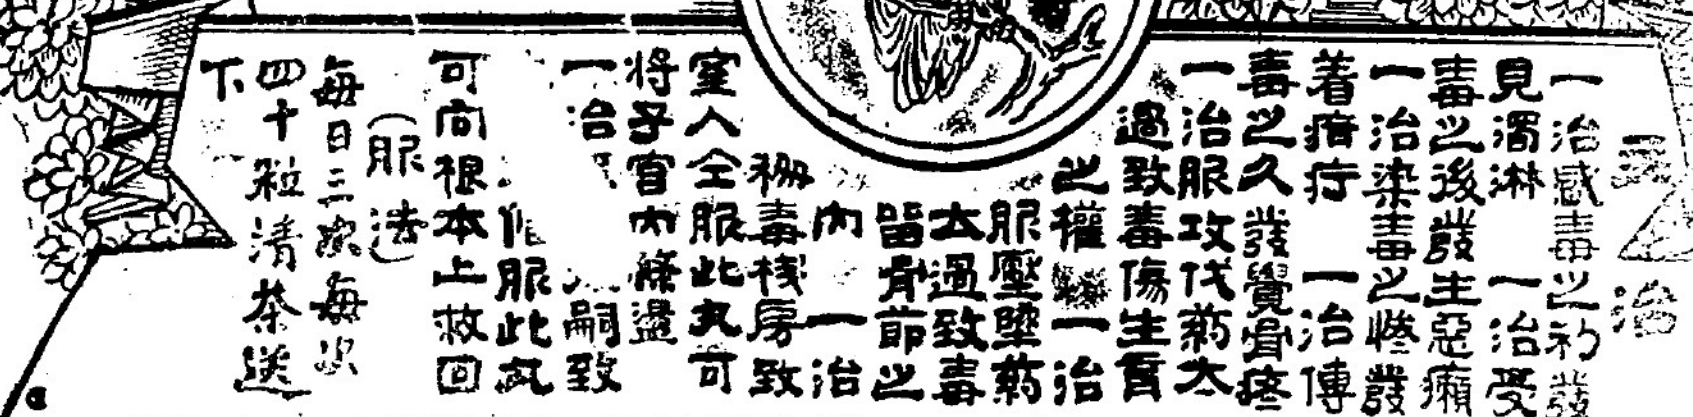 治
一治感毒之初發
見濁淋 一治受
毒之後發生惡癩
一治染毒之慘發
着疔 一治傳
毒之久發覺骨疼
一治服攻伐药太
過致毒傷生育
之權 一治
服壓墜药
太過致毒
留骨節之
內 一治
毒棧房致
室人仝服此丸可
將子宮內條盪
一治 嗣致
服此丸
可向根本上救回
(服法)
每日三次每次
四十粒清茶送
下